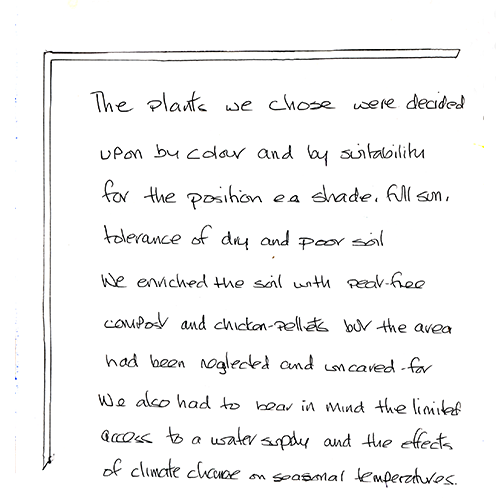 The plants we chose were decided
upon by colour and by suitability
for the position eg shade, full sun,
tolerance of dry and poor soil
We enriched the soil with peat-free
compost and chicken-pellets but the area
had been neglected and uncared-for
We also had to bear in mind the limited
access to a water supply and the effects
of climate change on seasonal temperatures.